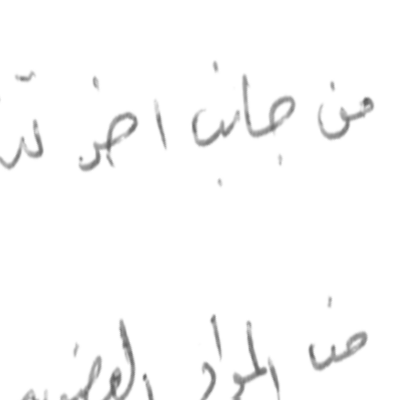 من جانب اخر
من المواد العضويه